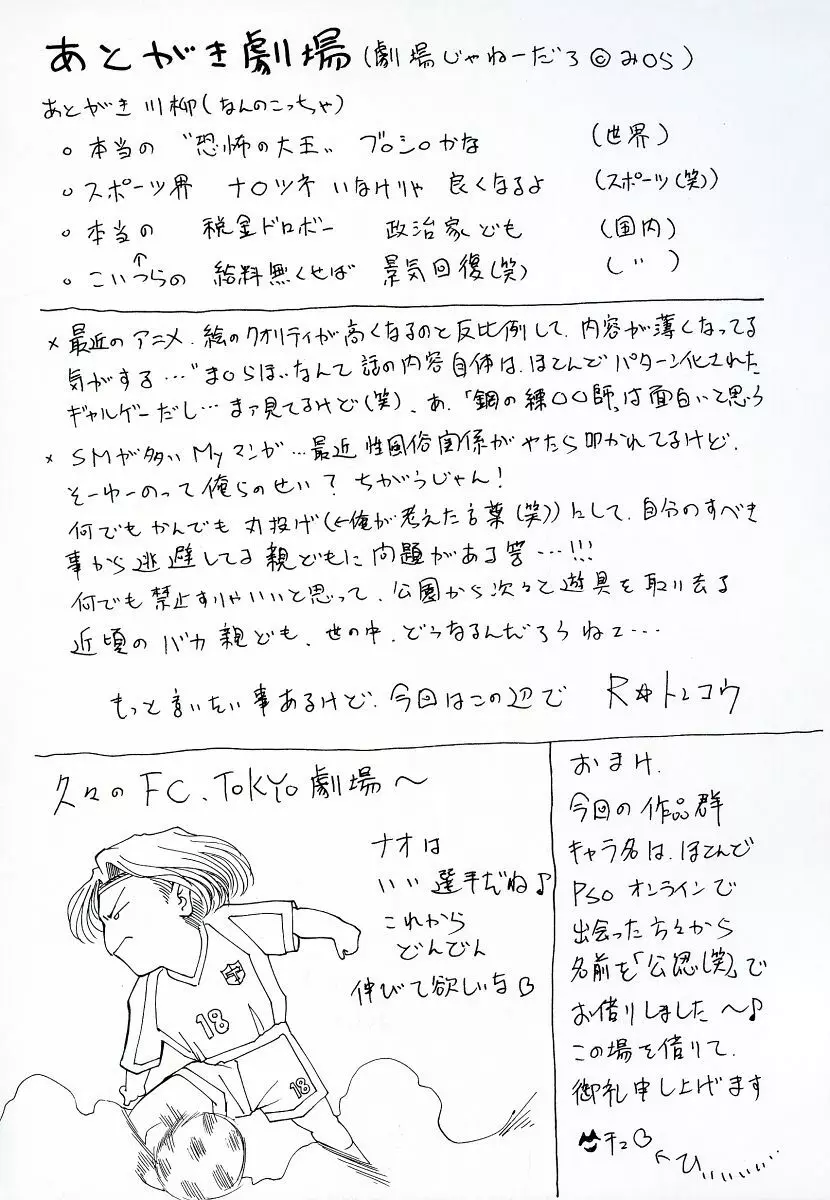 あとがき劇場(劇場じゃねーだろ©み○ら)
あとがき川柳(なんのこっちゃ)
○ 本当の “恐怖の大王„ ブ○シ○かな (世界)
○ スポーツ界 ナ○ツネ いなけりゃ 良くなるよ (スポーツ(笑))
○ 本当の 税金ドロボー 政治家ども (国内)
↑
○ こいつらの 給料無くせば 景気回復(笑) (〃)
× 最近のアニメ、絵のクオリティが高くなるのと反比例して、内容が薄くなってる
気がする…“ま○らほ„なんて話の内容自体は、ほてんでパターン化された
ギャルゲーだし…まァ見てるけど(笑)、あ、「鋼の練○○師」は面白いと思う
× SMが多いMyマンガ…最近性風俗関係がやたら叩かれてるけど、
そーゆーのって俺らのせい？ちがうじゃん！
何でもかんでも丸投げ(←俺が考えた言葉(笑))にして、自分のすべき
事から逃避してる親どもに問題がある筈…!!!
何でも禁止すりゃいいと思って、公園から次々と遊具を取り去る
近頃のバカ親ども、世の中、どうなるんだろうねェ…
もっと言いたい事あるけど、今回はこの辺で R☆トレコウ
久々のFC、TOKYO劇場〜
ナオは
いい選手だね♪
これから
どんどん
伸びて欲しいな
18
18
おまけ、
今回の作品群
キャラ名は、ほてんで
PSOオンラインで
出会った方々から
名前を「公認(笑)」で
お借りしました〜♪
この場を借りて、
御礼申し上げます
チュ
←ひ